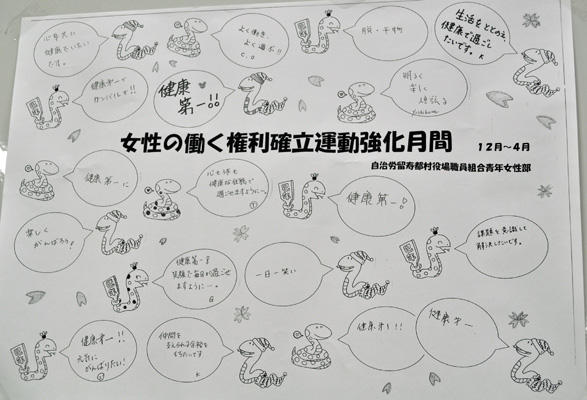 心身共に
健康でいたい
です。
よく働き、
よく遊ぶ!!
脱・干物
生活をととのえ
健康で過ごし
たいです。K
健康第一で
がんばるぞ!!
健康
第一!!
明るく
楽しく
頑張る
女性の働く権利確立運動強化月間 12月～4月
自治労留寿都村役場職員組合青年女性部
健康第一に
心も体も
健康な状態で
過ごせますように〜
健康第一!
楽しく
がんばろう!
健康第一!
笑顔で毎日が過ごせ
ますように〜。
一日一笑い
課題を意識して
解決したいです。
健康第一!!
元気に
がんばりたい!
仲間を
もちたいです
K
健康第一!!
健康第一